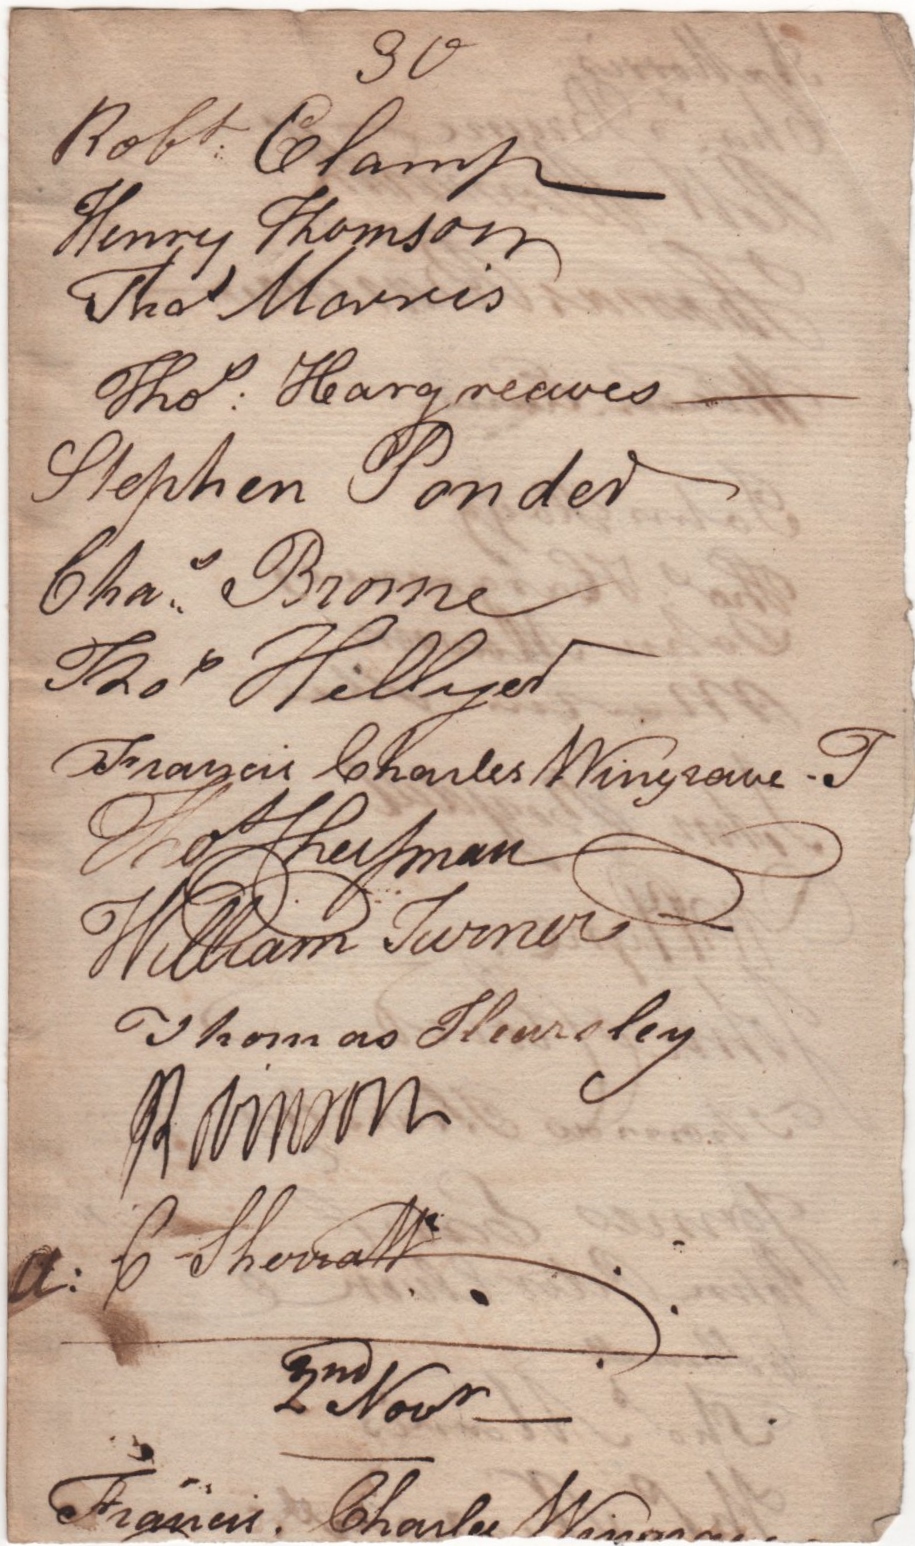 30
Robt. Clamp
Henry Thomson
Thos Morris
Thos. Hargreaves
Stephen Ponder
Chas. Brome
Thos Hillyer
Francis Charles Wingrave - T
Thos
William Turner
Thomas
Robinson
a: C Sherratt
2nd Novr
Francis. Charles Wingrave